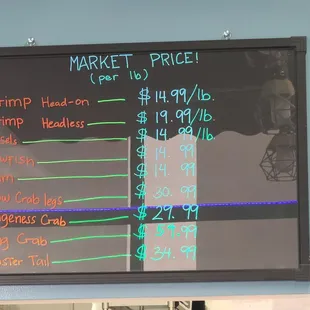 MARKET PRICE!
(per lb)
rimp Head-on $14.99/lb.
rimp Headless $19.99/lb.
sels $14.99/lb.
wfish $14.99
m $14.99
ow Crab legs $30.99
ngeness Crab $29.99
g Crab $59.99
bster Tail $34.99